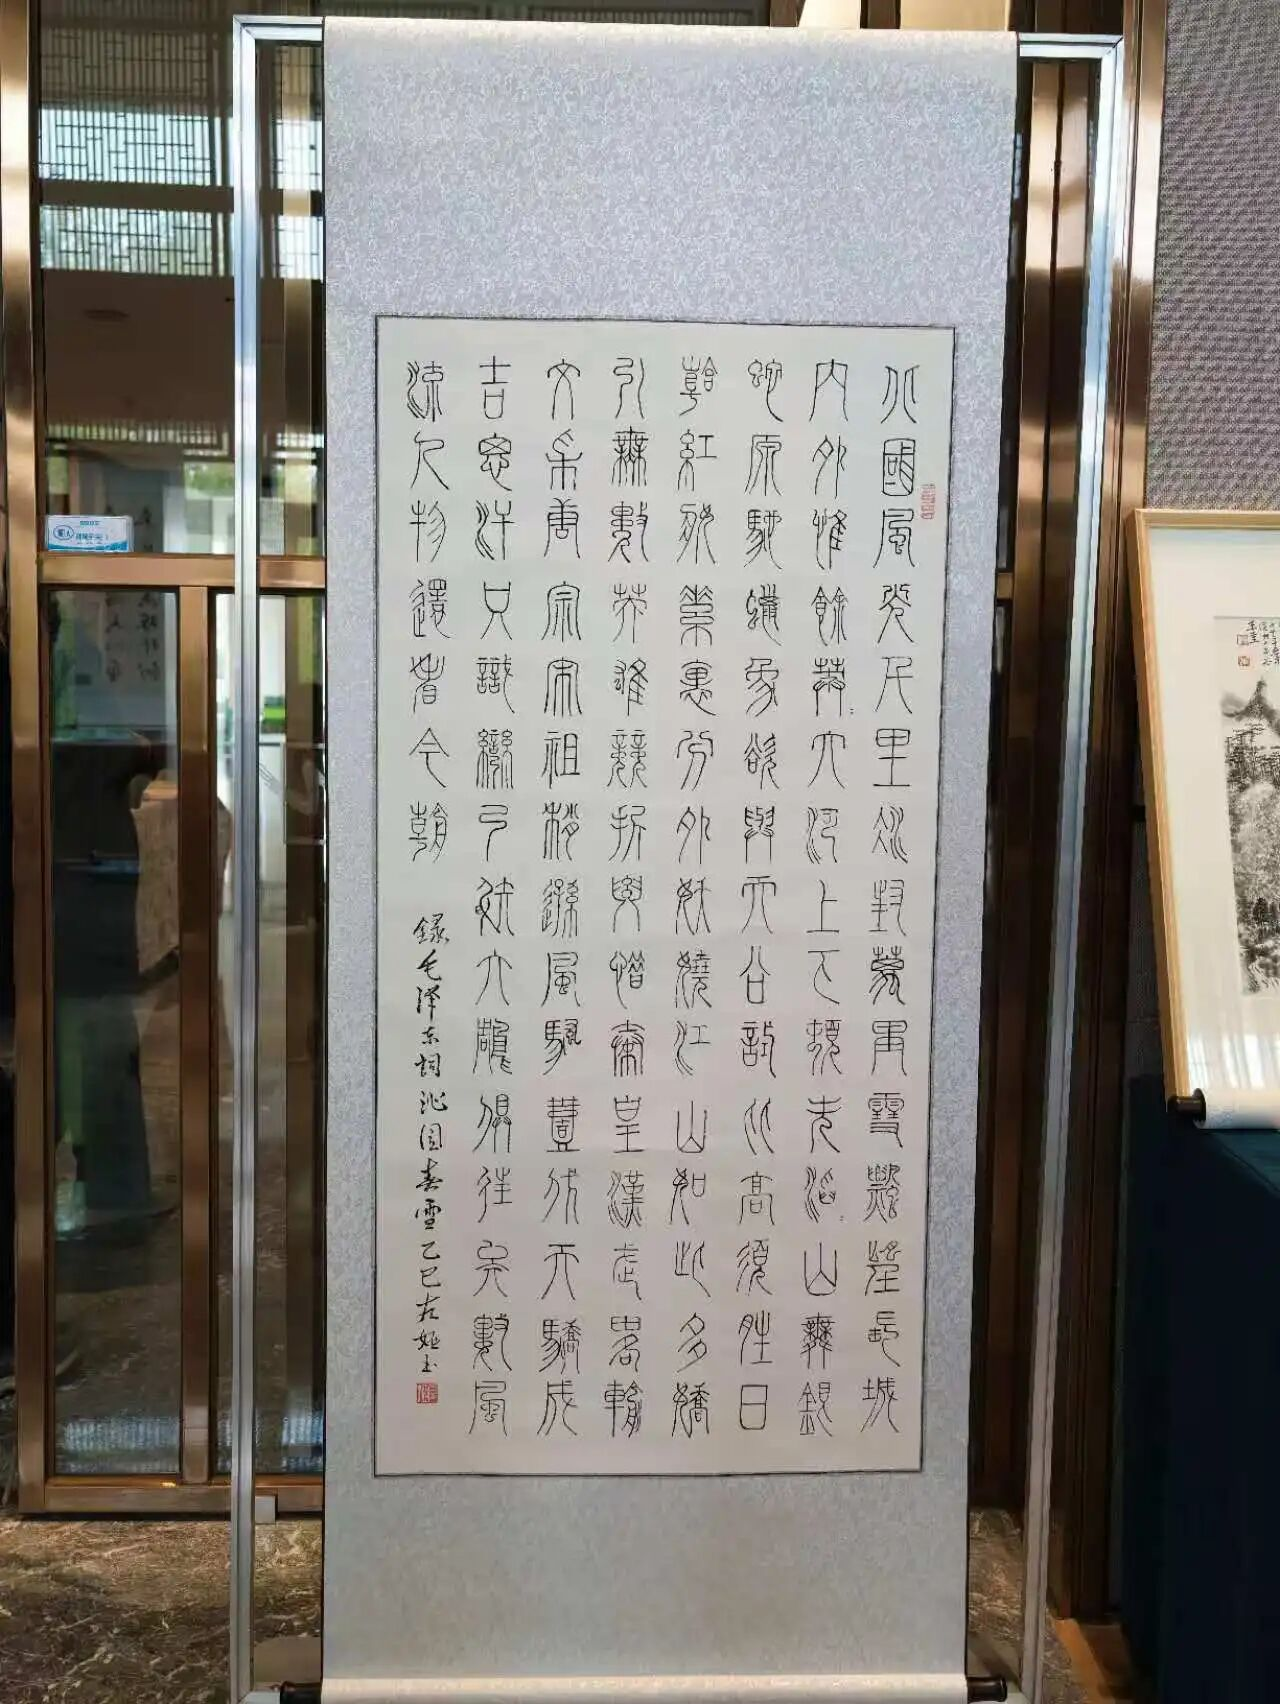 北國風光千里冰封萬里雪飄望長城
内外惟餘莽:大河上下頓失滔:山舞銀
蛇原馳蠟象欲與天公試比高須晴日
看紅裝素裹分外妖嬈江山如此多嬌
引無數英雄競折腰惜秦皇漢武略輸
文采唐宗宋祖稍遜風騷壹代天驕成
吉思汗只識彎弓射大鵰俱往矣數風
流人物還看今朝
録毛泽东詞沁园春雪乙巳左书